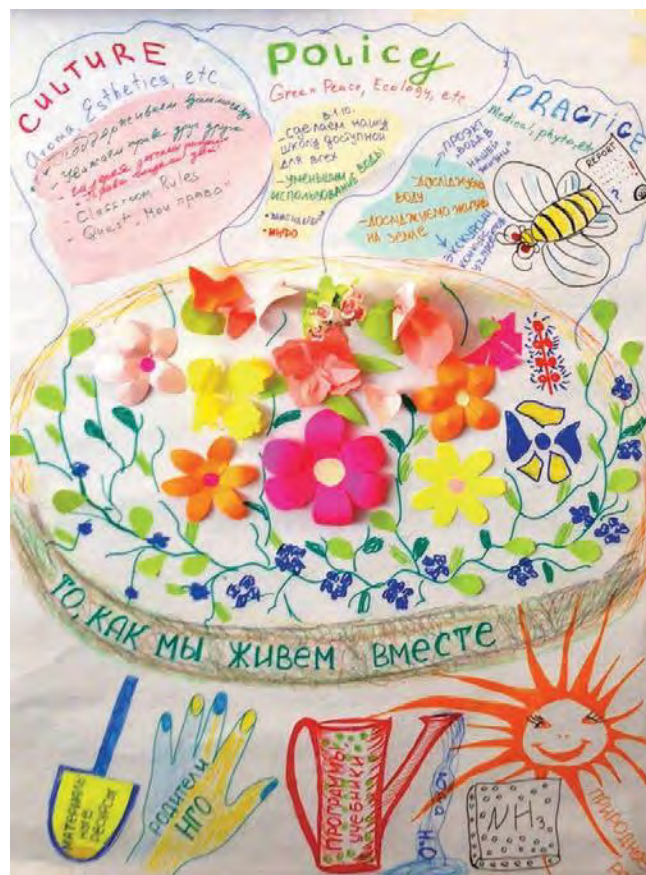 CULTURE
Aroma, Esthetics, etc
- Поддерживаем
- Уважаем права друг друга
- Classroom Rules
- Quest "Мои права"
POLICY
Green Peace, Ecology, etc
- Сделаем нашу
школу доступной
для всех
- Уменьшим
использование воды
PRACTICE
Medical, phyto, etc
REPORT
?
проэкт
"Вода в
нашей
жизни"
- Досліджуємо
воду
- Досліджуємо життя
на землі
То, как мы живем вместе
Материаль
ные
ресурсы
Родители
НГО
Программы,
учебники
H₂O
NH₃